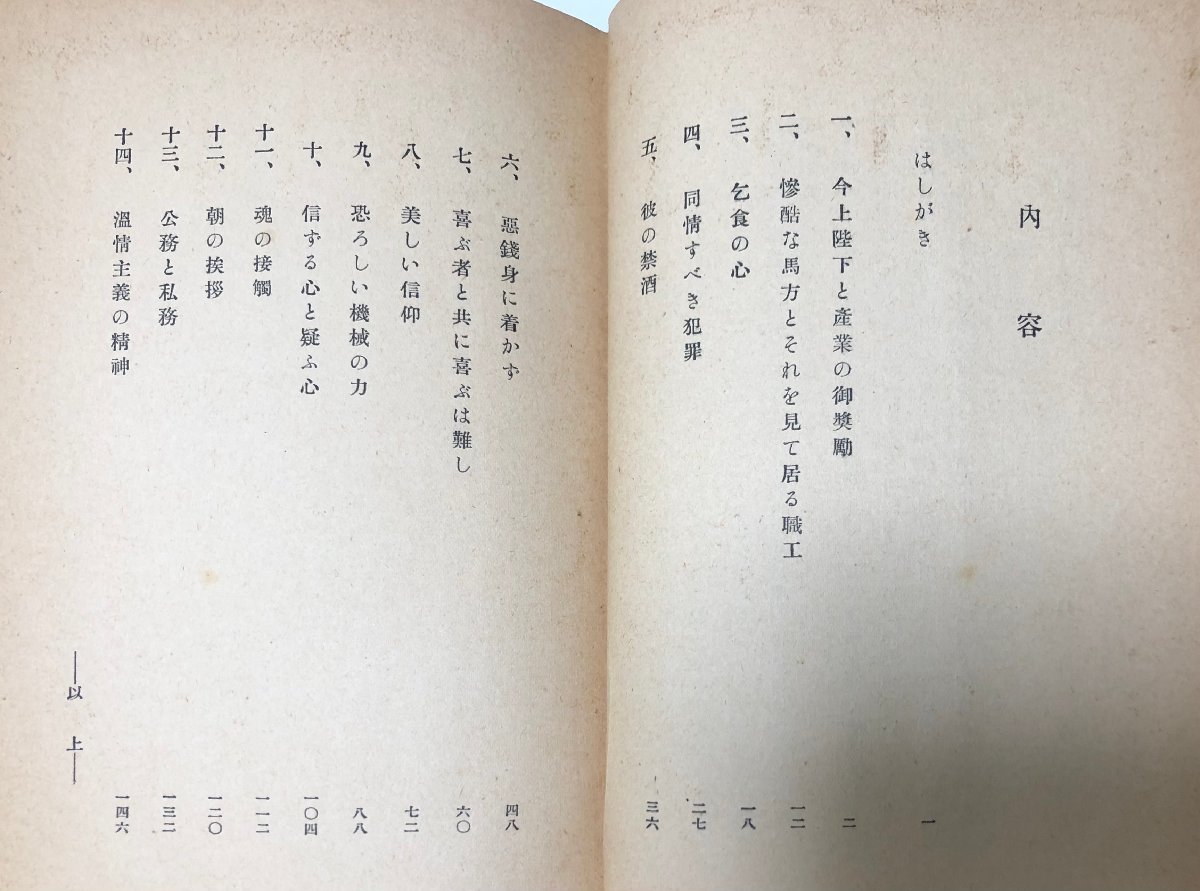 內容
はしがき 一
一、今上陛下と產業の御奬勵 二
二、慘酷な馬方とそれを見て居る職工 一二
三、乞食の心 一八
四、同情すべき犯罪 二七
五、彼の禁酒 三六
六、惡錢身に着かず 四八
七、喜ぶ者と共に喜ぶは難し 六〇
八、美しい信仰 七二
九、恐ろしい機械の力 八八
十、信ずる心と疑ふ心 一〇四
十一、魂の接觸 一一二
十二、朝の挨拶 一二〇
十三、公務と私務 一三二
十四、溫情主義の精神 一四六
——以上——